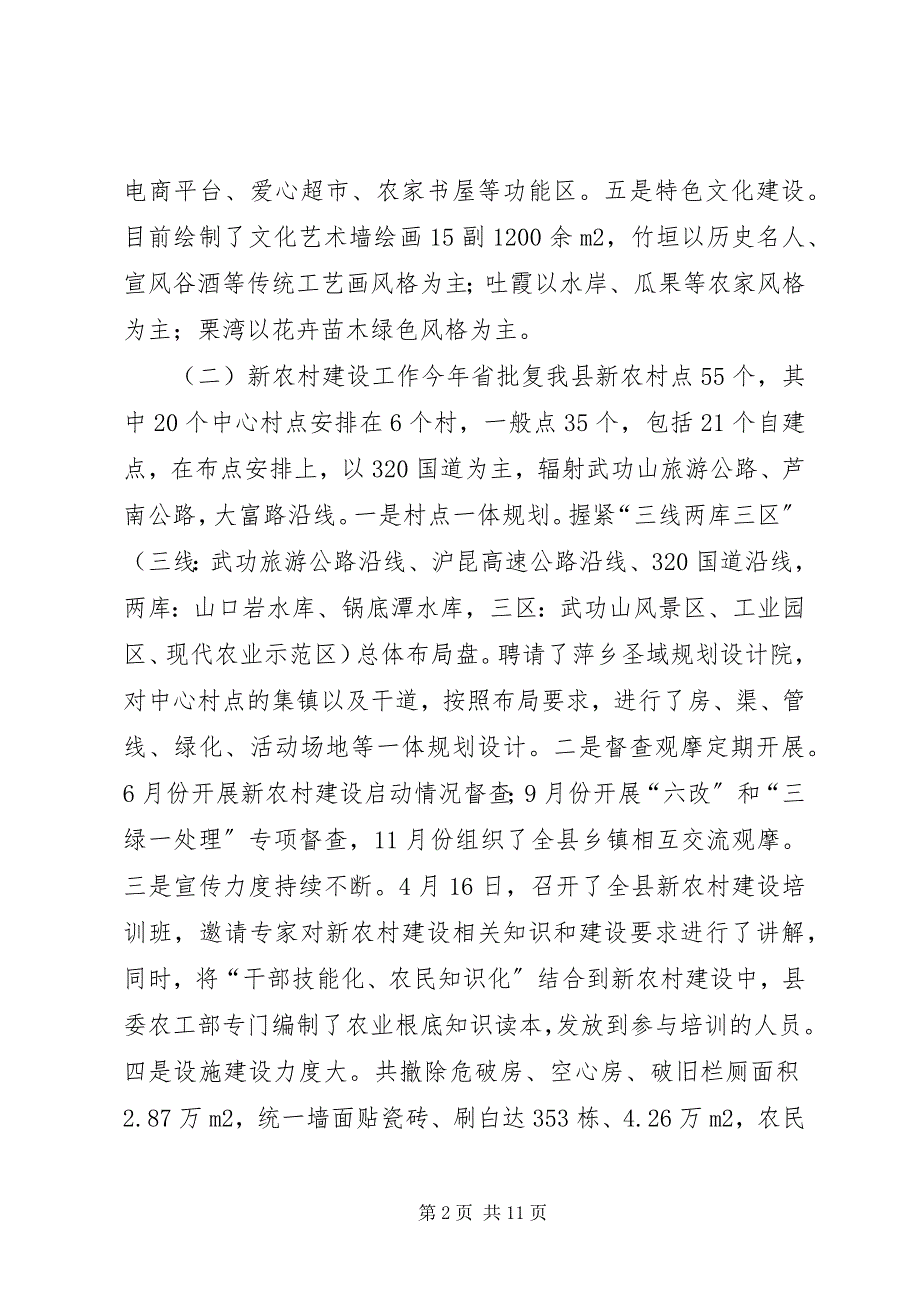 电商平台、爱心超市、农家书屋等功能区。五是特色文化建设。
目前绘制了文化艺术墙绘画 15 副 1200 余 m2，竹垣以历史名人、
宣风谷酒等传统工艺画风格为主；吐霞以水岸、瓜果等农家风格
为主；栗湾以花卉苗木绿色风格为主。
（二）新农村建设工作今年省批复我县新农村点 55 个，其
中 20 个中心村点安排在 6 个村，一般点 35 个，包括 21 个自建
点，在布点安排上，以 320 国道为主，辐射武功山旅游公路、芦
南公路，大富路沿线。一是村点一体规划。握紧“三线两库三区〞
（三线：武功旅游公路沿线、沪昆高速公路沿线、320 国道沿线，
两库：山口岩水库、锅底潭水库，三区：武功山风景区、工业园
区、现代农业示范区）总体布局盘。聘请了萍乡圣域规划设计院，
对中心村点的集镇以及干道，按照布局要求，进行了房、渠、管
线、绿化、活动场地等一体规划设计。二是督查观摩定期开展。
6 月份开展新农村建设启动情况督查；9 月份开展“六改〞和“三
绿一处理〞专项督查，11 月份组织了全县乡镇相互交流观摩。
三是宣传力度持续不断。4 月 16 日，召开了全县新农村建设培
训班，邀请专家对新农村建设相关知识和建设要求进行了讲解，
同时，将“干部技能化、农民知识化〞结合到新农村建设中，县
委农工部专门编制了农业根底知识读本，发放到参与培训的人员。
四是设施建设力度大。共撤除危破房、空心房、破旧栏厕面积
2.87 万 m2，统一墙面贴瓷砖、刷白达 353 栋、4.26 万 m2，农民
第 2 页 共 11 页